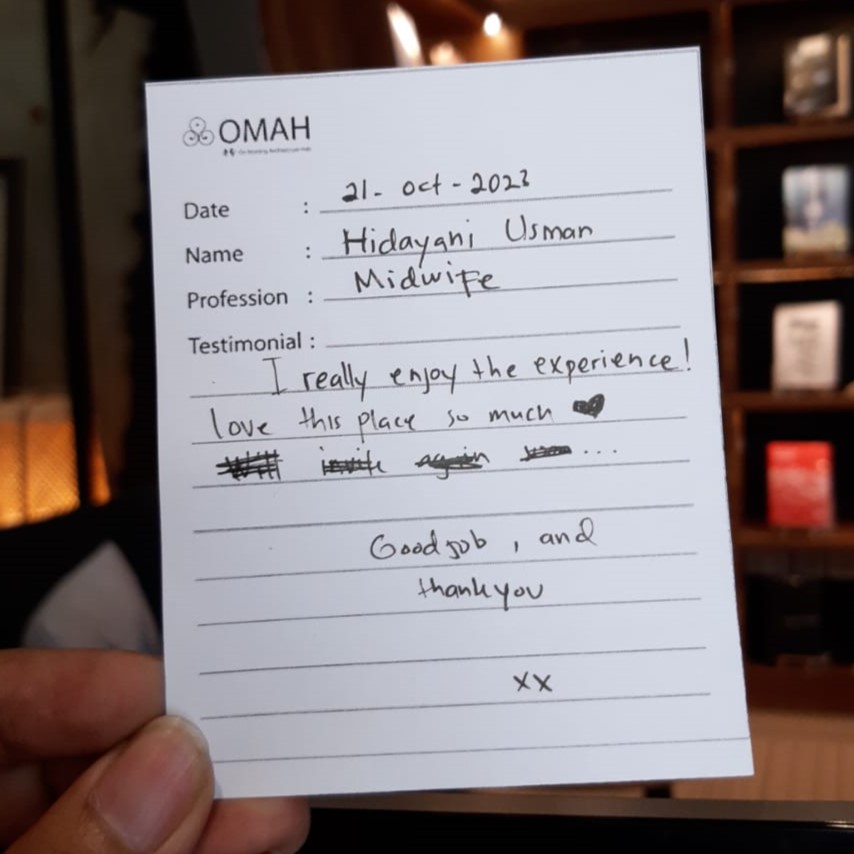 OMAH
Date : 21- Oct - 2023
Name : Hidayani Usman
Profession : Midwife
Testimonial :
I really enjoy the experience!
love this place so much ♥
invite again ...
Good job , and
thank you
xx